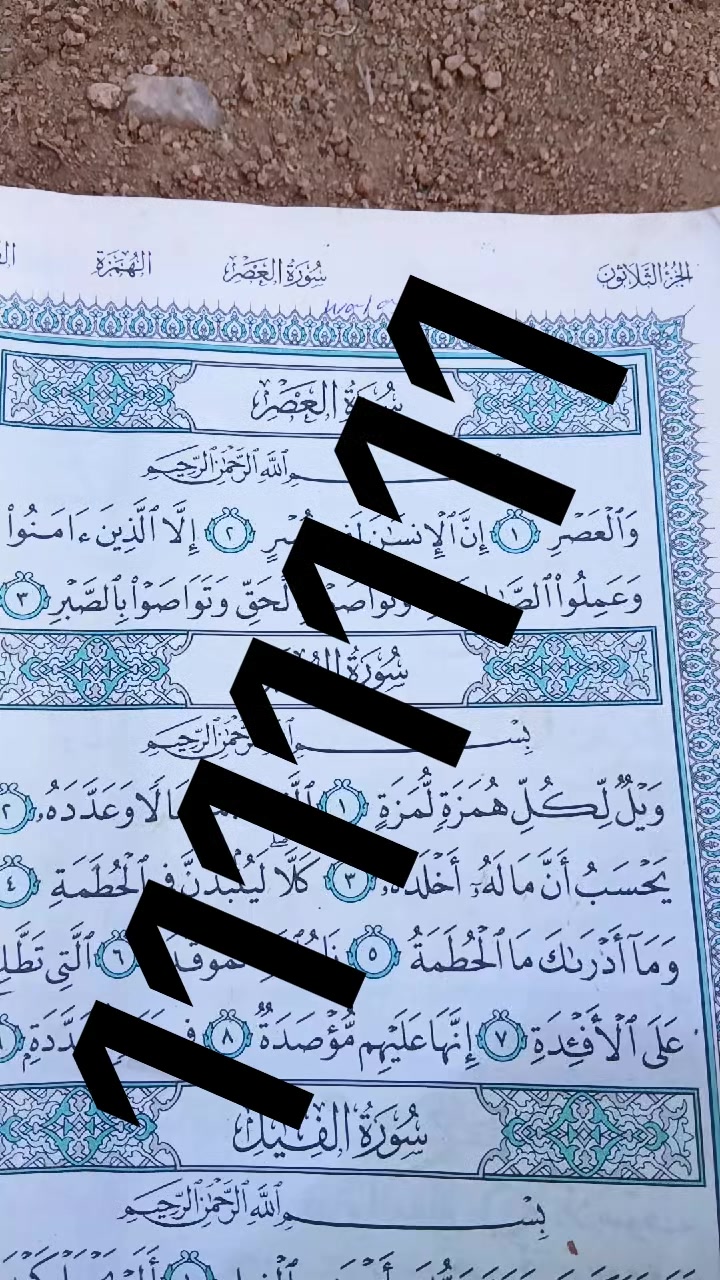 الجزء الثلاثون سورة العصر الهمزة
سورة العصر
ٱللَّهِ ٱلرَّحْمَٰنِ ٱلرَّحِيمِ
وَٱلْعَصْرِ ١ إِنَّ ٱلْإِنسَٰنَ لَفِى خُسْرٍ ٢ إِلَّا ٱلَّذِينَ ءَامَنُوا۟
وَعَمِلُوا۟ ٱلصَّٰلِحَٰتِ وَتَوَاصَوْا۟ بِٱلْحَقِّ وَتَوَاصَوْا۟ بِٱلصَّبْرِ ٣
سورة الهمزة
بِسْمِ ٱللَّهِ ٱلرَّحْمَٰنِ ٱلرَّحِيمِ
وَيْلٌ لِّكُلِّ هُمَزَةٍ لُّمَزَةٍ ١ مَالًا وَعَدَّدَهُۥ ٢
يَحْسَبُ أَنَّ مَالَهُۥٓ أَخْلَدَهُۥ ٣ كَلَّا ۖ لَيُنۢبَذَنَّ فِى ٱلْحُطَمَةِ ٤
وَمَآ أَدْرَىٰكَ مَا ٱلْحُطَمَةُ ٥ نَارُ ٱلْمُوقَدَةُ ٦ ٱلَّتِى تَطَّلِعُ
عَلَى ٱلْأَفْـِٔدَةِ ٧ إِنَّهَا عَلَيْهِم مُّؤْصَدَةٌ ٨ فِى مُّمَدَّدَةٍۭ ٩
سورة الفيل
بِسْمِ ٱللَّهِ ٱلرَّحْمَٰنِ ٱلرَّحِيمِ
1111111